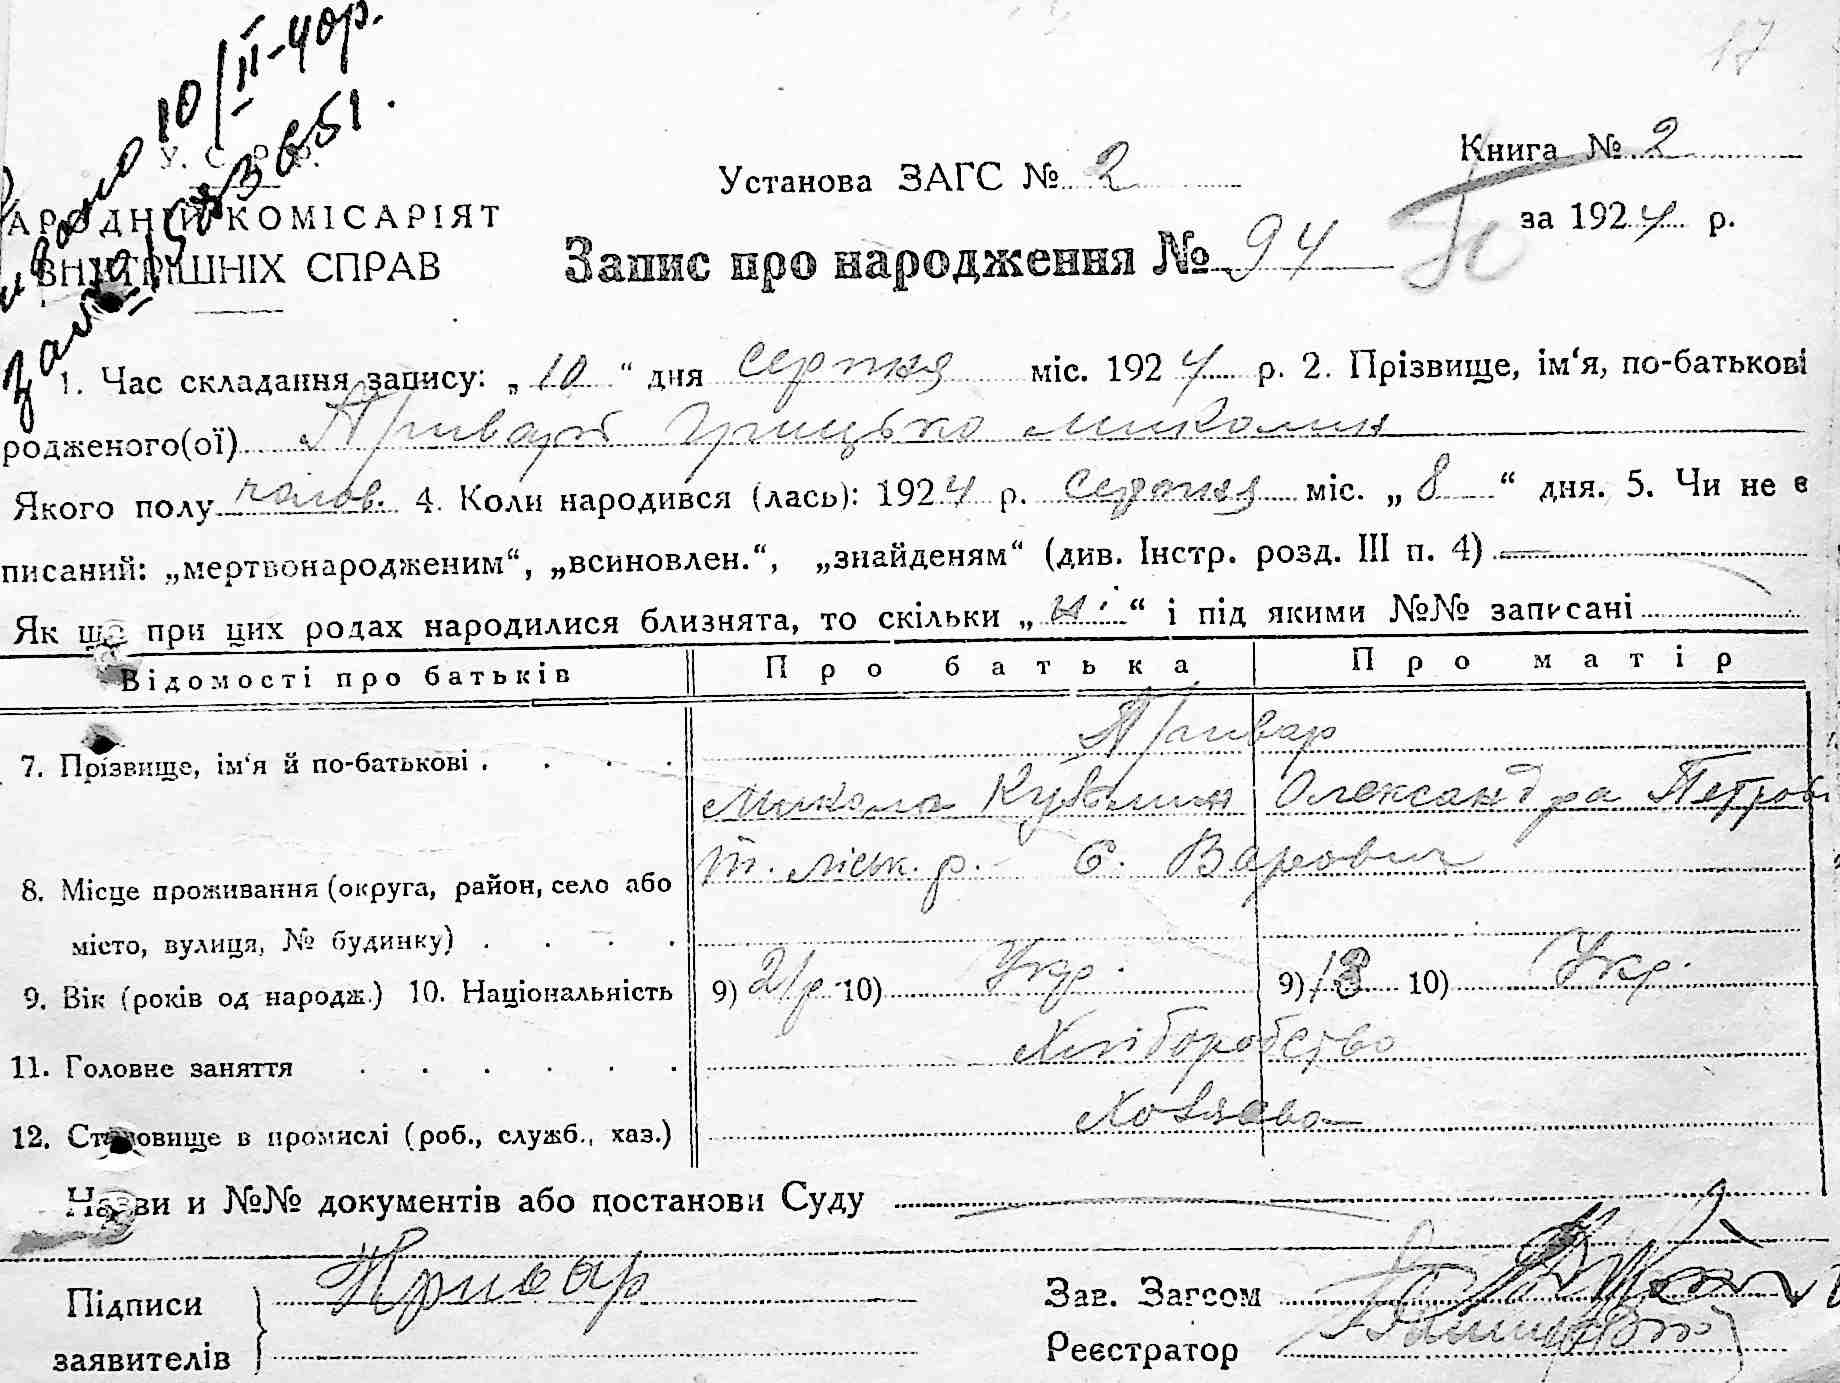 17
10/II-40р.
У. С. Р. Р.
Книга № 2
Установа ЗАГС № 2
АРОДНІЙ КОМІСАРІЯТ
за 1924 р.
ВНУТРІШНІХ СПРАВ
Запис про народження № 94
1. Час складання запису: „10“ дня серпня міс. 1924 р. 2. Прізвище, ім‘я, по-батькові
родженого(ої) Привар Грицько Миколин
Якого полу чолов. 4. Коли народився (лась): 1924 р. серпня міс. „8“ дня. 5. Чи не є
писаний: „мертвонародженим“, „всиновлен.“, „знайденям“ (див. Інстр. розд. III п. 4)
Як що при цих родах народилися близнята, то скільки „ні“ і під якими №№ записані
Відомості про батьків Про батька Про матір
7. Прізвище, ім‘я й по-батькові Привар
Микола Кузьмин Олександра Петрові
8. Місце проживання (округа, район, село або Т. міськ. р. С. Варович
місто, вулиця, № будинку)
9. Вік (років од народж.) 10. Національність 9) 21 р. 10) Укр. 9) 18 10) Укр.
11. Головне заняття Хліборобство
12. Становище в промислі (роб., служб., хаз.) Хозяева
Назви и №№ документів або постанови Суду
Підписи Привар Зав. Загсом
заявителів Реєстратор